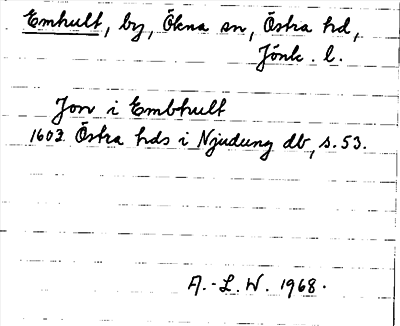 Emhult, by, Ökna sn, Östra hd,
Jönk. l.
Jon i Embhult
1603 Östra hds i Njudung db, s. 53.
A.-L. W. 1968.